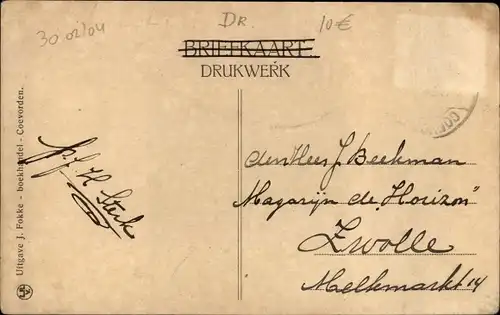 30 02/04
Dr.
10€
BRIEFKAART.
DRUKWERK
Uitgave J. Fokke - boekhandel - Coevorden.
H Sterk
den Heer J. Beekman
Magazijn de "Horizon"
Zwolle
Melkmarkt 14